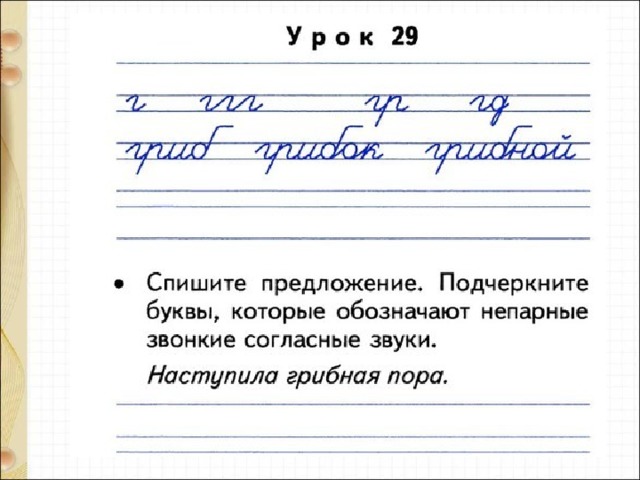 Урок 29
г ггг гр гд
гриб грибок грибной
• Спишите предложение. Подчеркните
буквы, которые обозначают непарные
звонкие согласные звуки.
Наступила грибная пора.